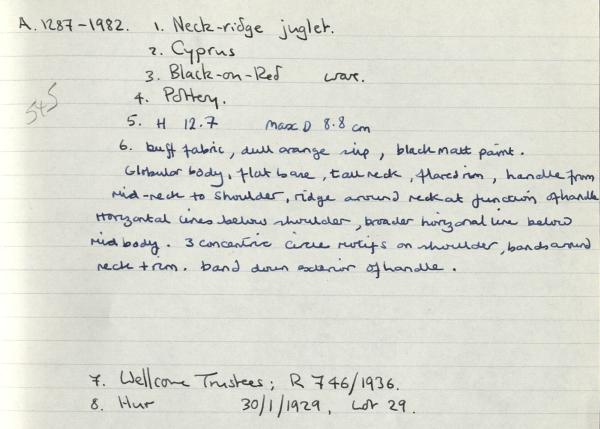 A.1287-1982. 1. Neck-ridge juglet.
2. Cyprus
3. Black-on-Red ware.
4. Pottery.
545
5. H 12.7 Max D 8.8 cm
6. buff fabric, dull orange slip, black matt paint.
Globular body, flat base, tall neck, flared rim, handle from
mid-neck to shoulder, ridge around neck at junction of handle
Horizontal lines below shoulder, broader horizonal line below
mid body. 3 concentric circle motifs on shoulder, bands around
neck + rim. band down exterior of handle.
7. Wellcome Trustees; R 746/1936.
8. Hur 30/1/1929, Lot 29.